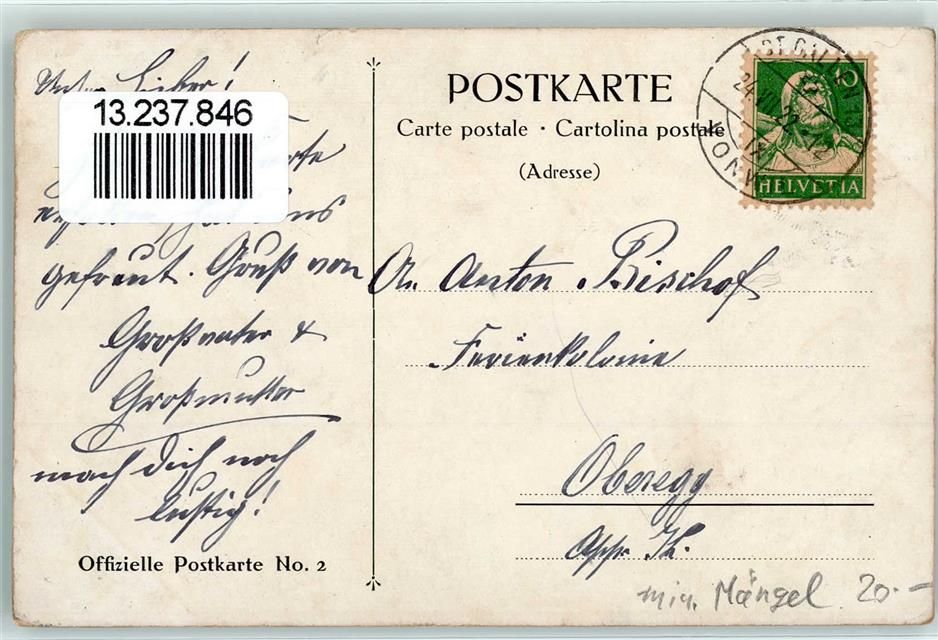 Lieber!
13.237.846
gefreut. Gruß von
Großvater &
Großmutter
mach dich noch
lustig!
Offizielle Postkarte No. 2
POSTKARTE
Carte postale · Cartolina postale
(Adresse)
ST. GALLEN
HELVETIA
10
An Anton Bischof
Ferienkolonie
Oberegg
App.
min. Mängel 20.-